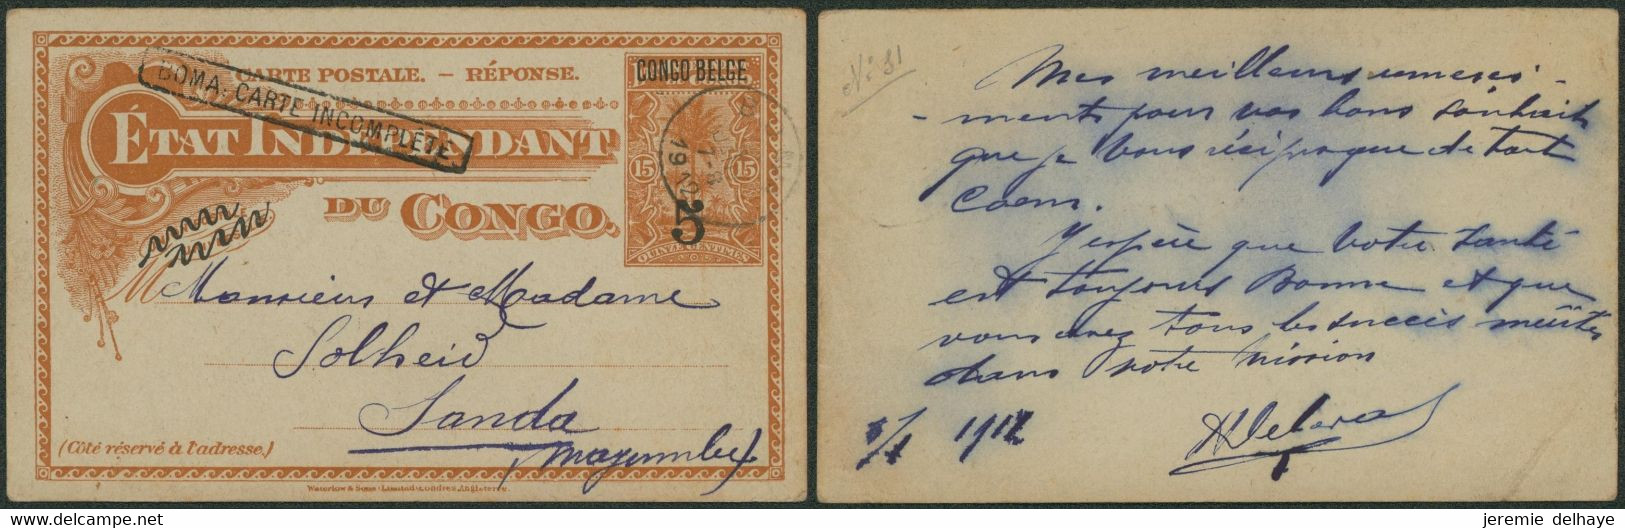 CARTE POSTALE. — RÉPONSE.
BOMA: CARTE INCOMPLÈTE.
ÉTAT INDÉPENDANT
DU CONGO.
CONGO BELGE
15 15
1912
5
QUINZE CENTIMES
Monsieur et Madame
Solheid
Sanda
(Mayumbe)
(Côté réservé à l'adresse.)
Waterlow & Sons Limited, Londres, Angleterre.
No 31
Mes meilleurs remerci-
-ments pour vos bons souhaits
que je vous réciproque de tout
Coeur.
J'espère que votre santé
est toujours Bonne et que
vous avez tous les succès mérités
dans votre Mission
1912
jeremie delhaye